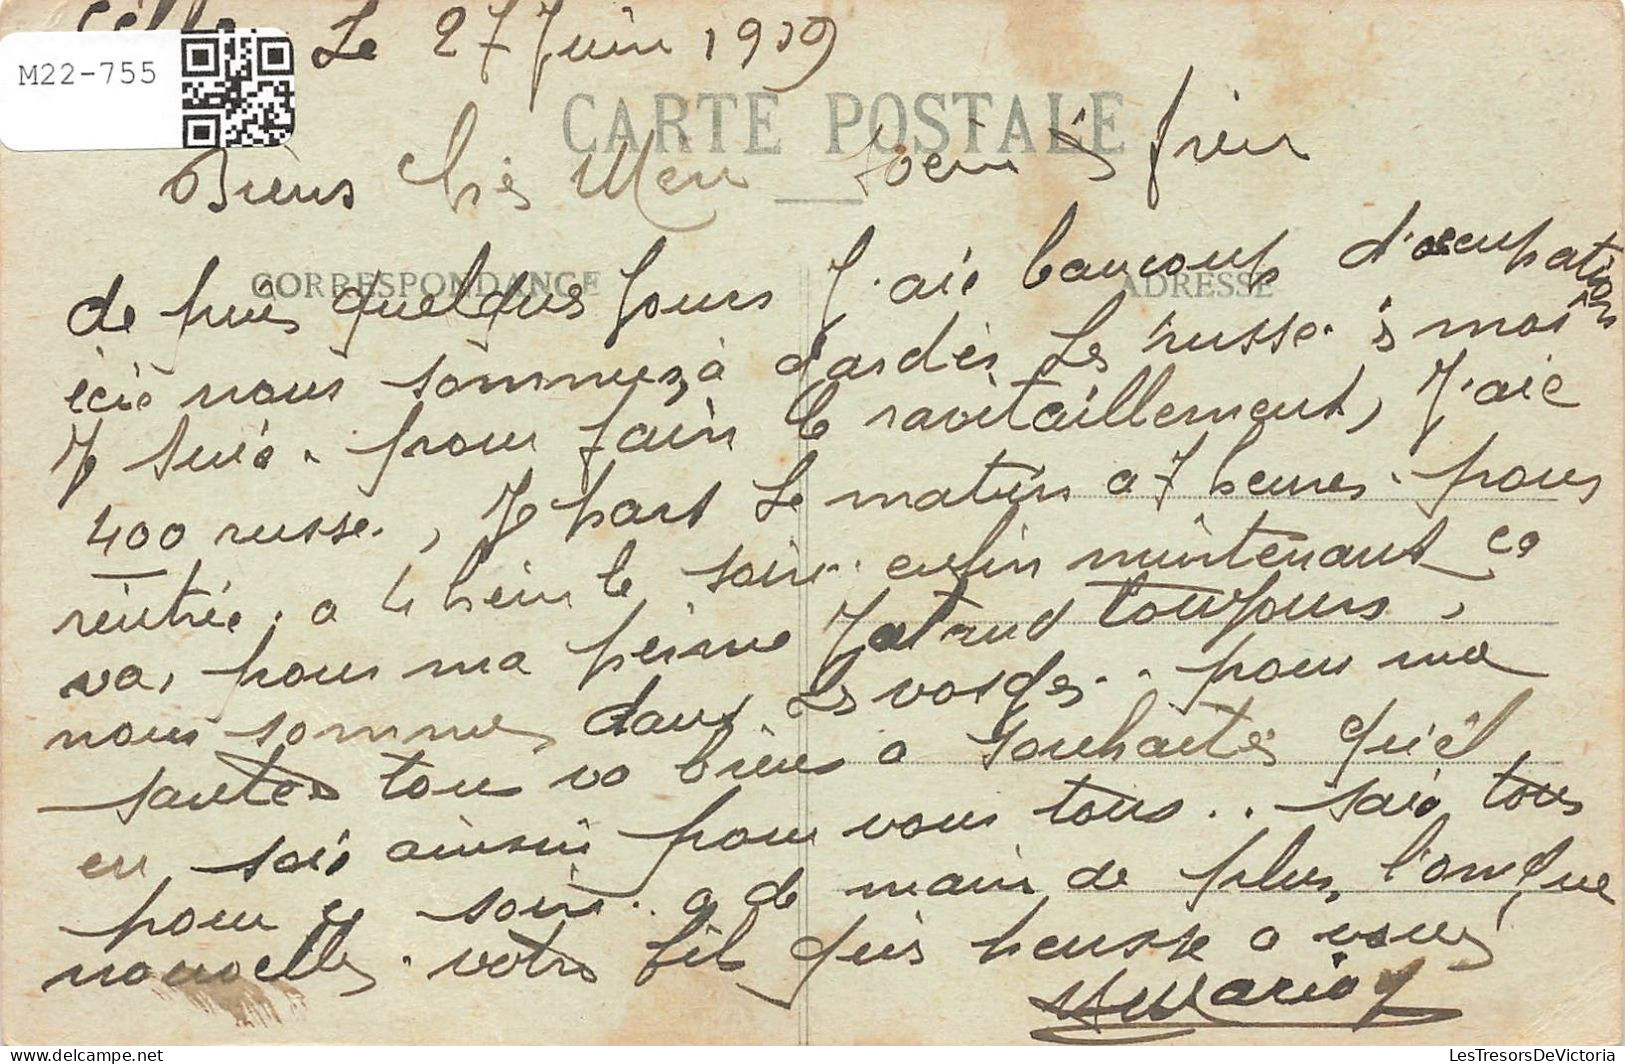 Le 27 Juin 1919
M22-755
CARTE POSTALE
Biens chès Mère Soeur è frèir
CORRESPONDANCE
ADRESSE
de puis quelques Jours J'aie baucoup d'ocupations
icie nous sommes à gardès Les russe. è moi
Je suie. pour fair le ravitaillement, J'aie
400 russe., Je part Le matin a 7 heures. pour
rentrée. a 4 heur le soir. enfin mintenant ca
va, pour ma peine toujours,
nous sommes dans Les vosges.. pour ma
santer tou va bien a souhaiter qu'el
en soie ainsin pour vous tous.. saie tous
pour ce soir.. a de main de plus, l'ongue
nouvelles. votre fils quis pensse a vous
LesTresorsDeVictoria
www.delcampe.net